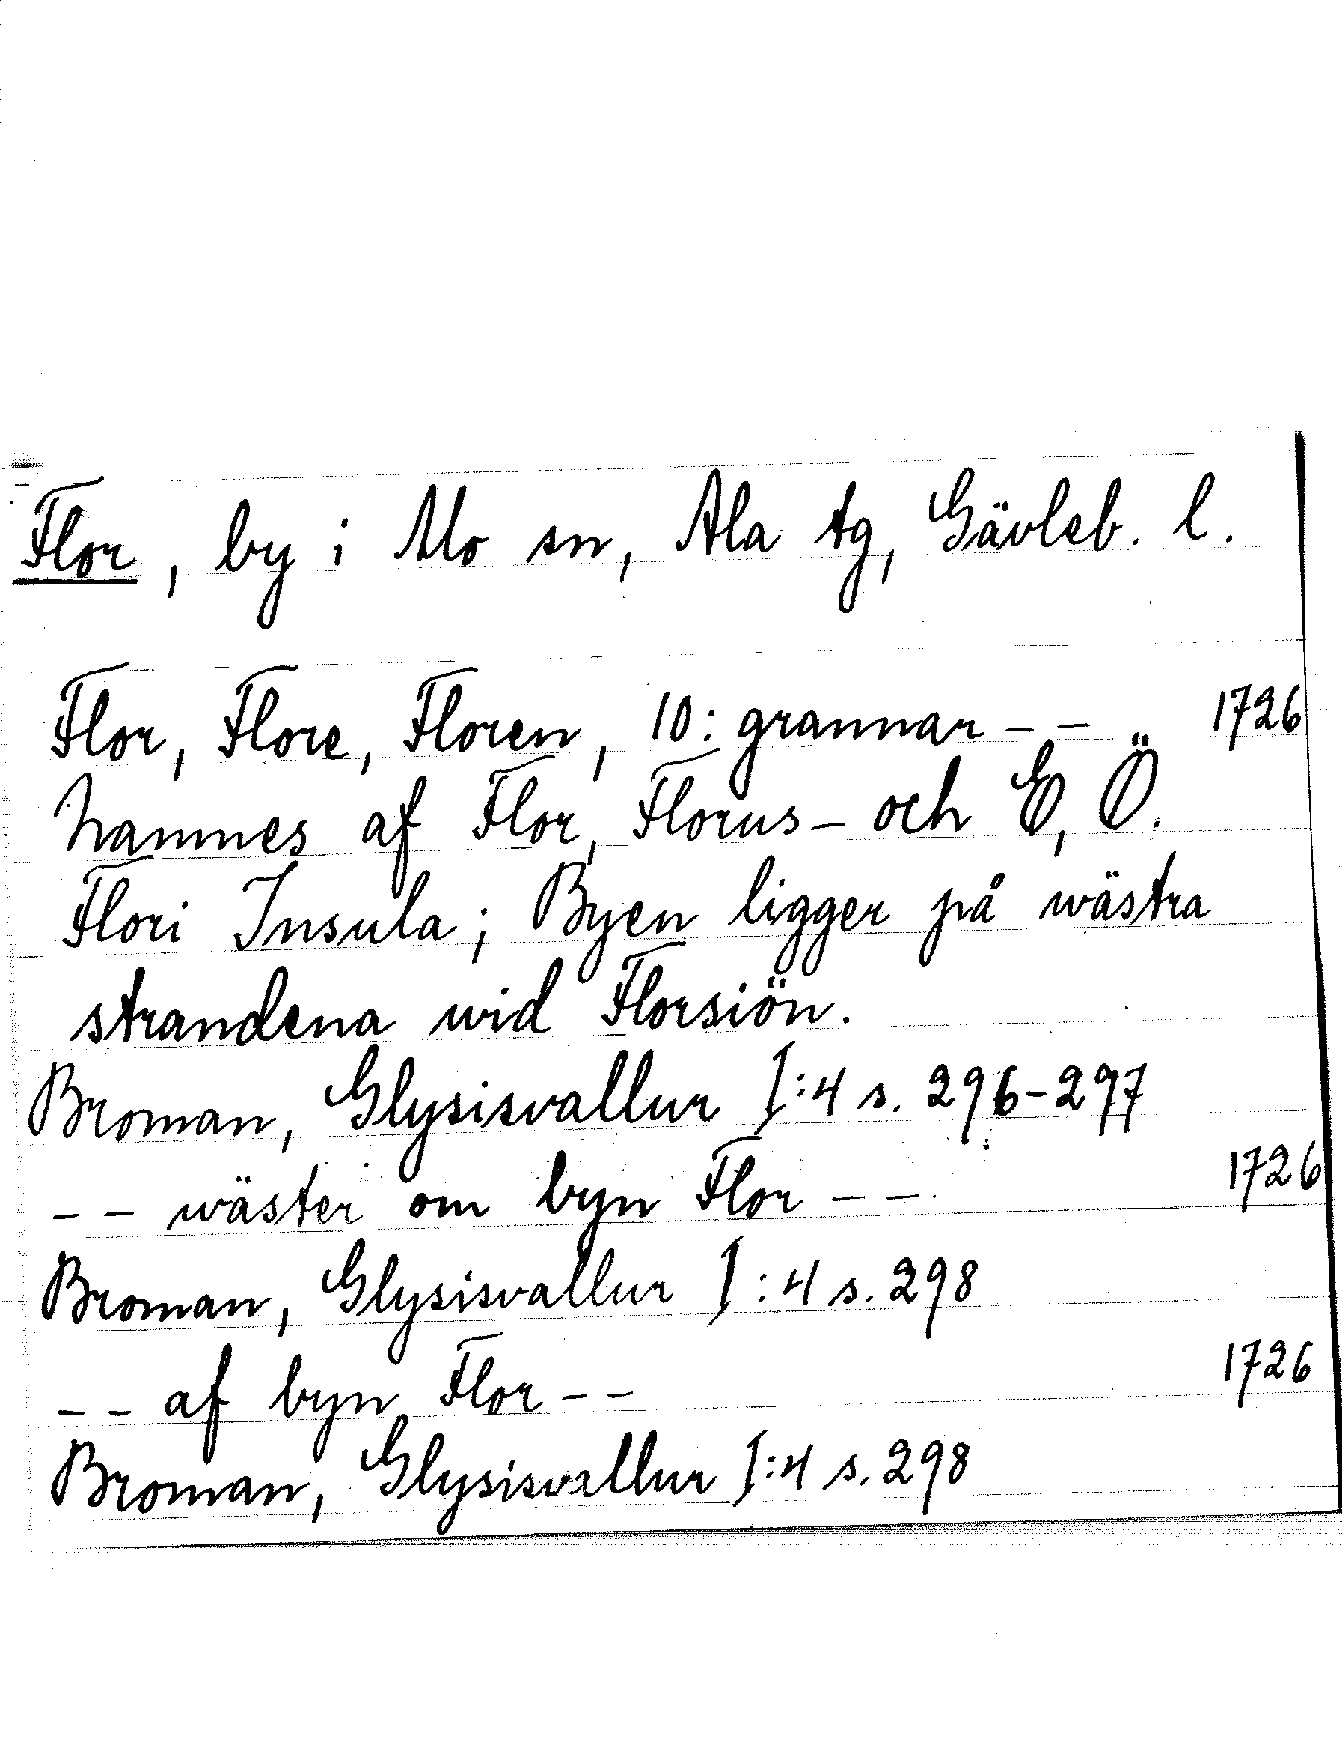 Flor, by i Mo sn, Ala tg, Gävleb. l.
Flor, Flore, Floren, 10: grannar - - 1726
hamnes af Flor, Florus - och E, Ö.
Flori Insula; Byen ligger på wästra
strandena wid Florsiön.
Broman, Glysisvallur I:4 s. 296-297
- - wäster om byn Flor - - 1726
Broman, Glysisvallur I:4 s. 298
- - af byn Flor - - 1726
Broman, Glysisvallur I:4 s. 298